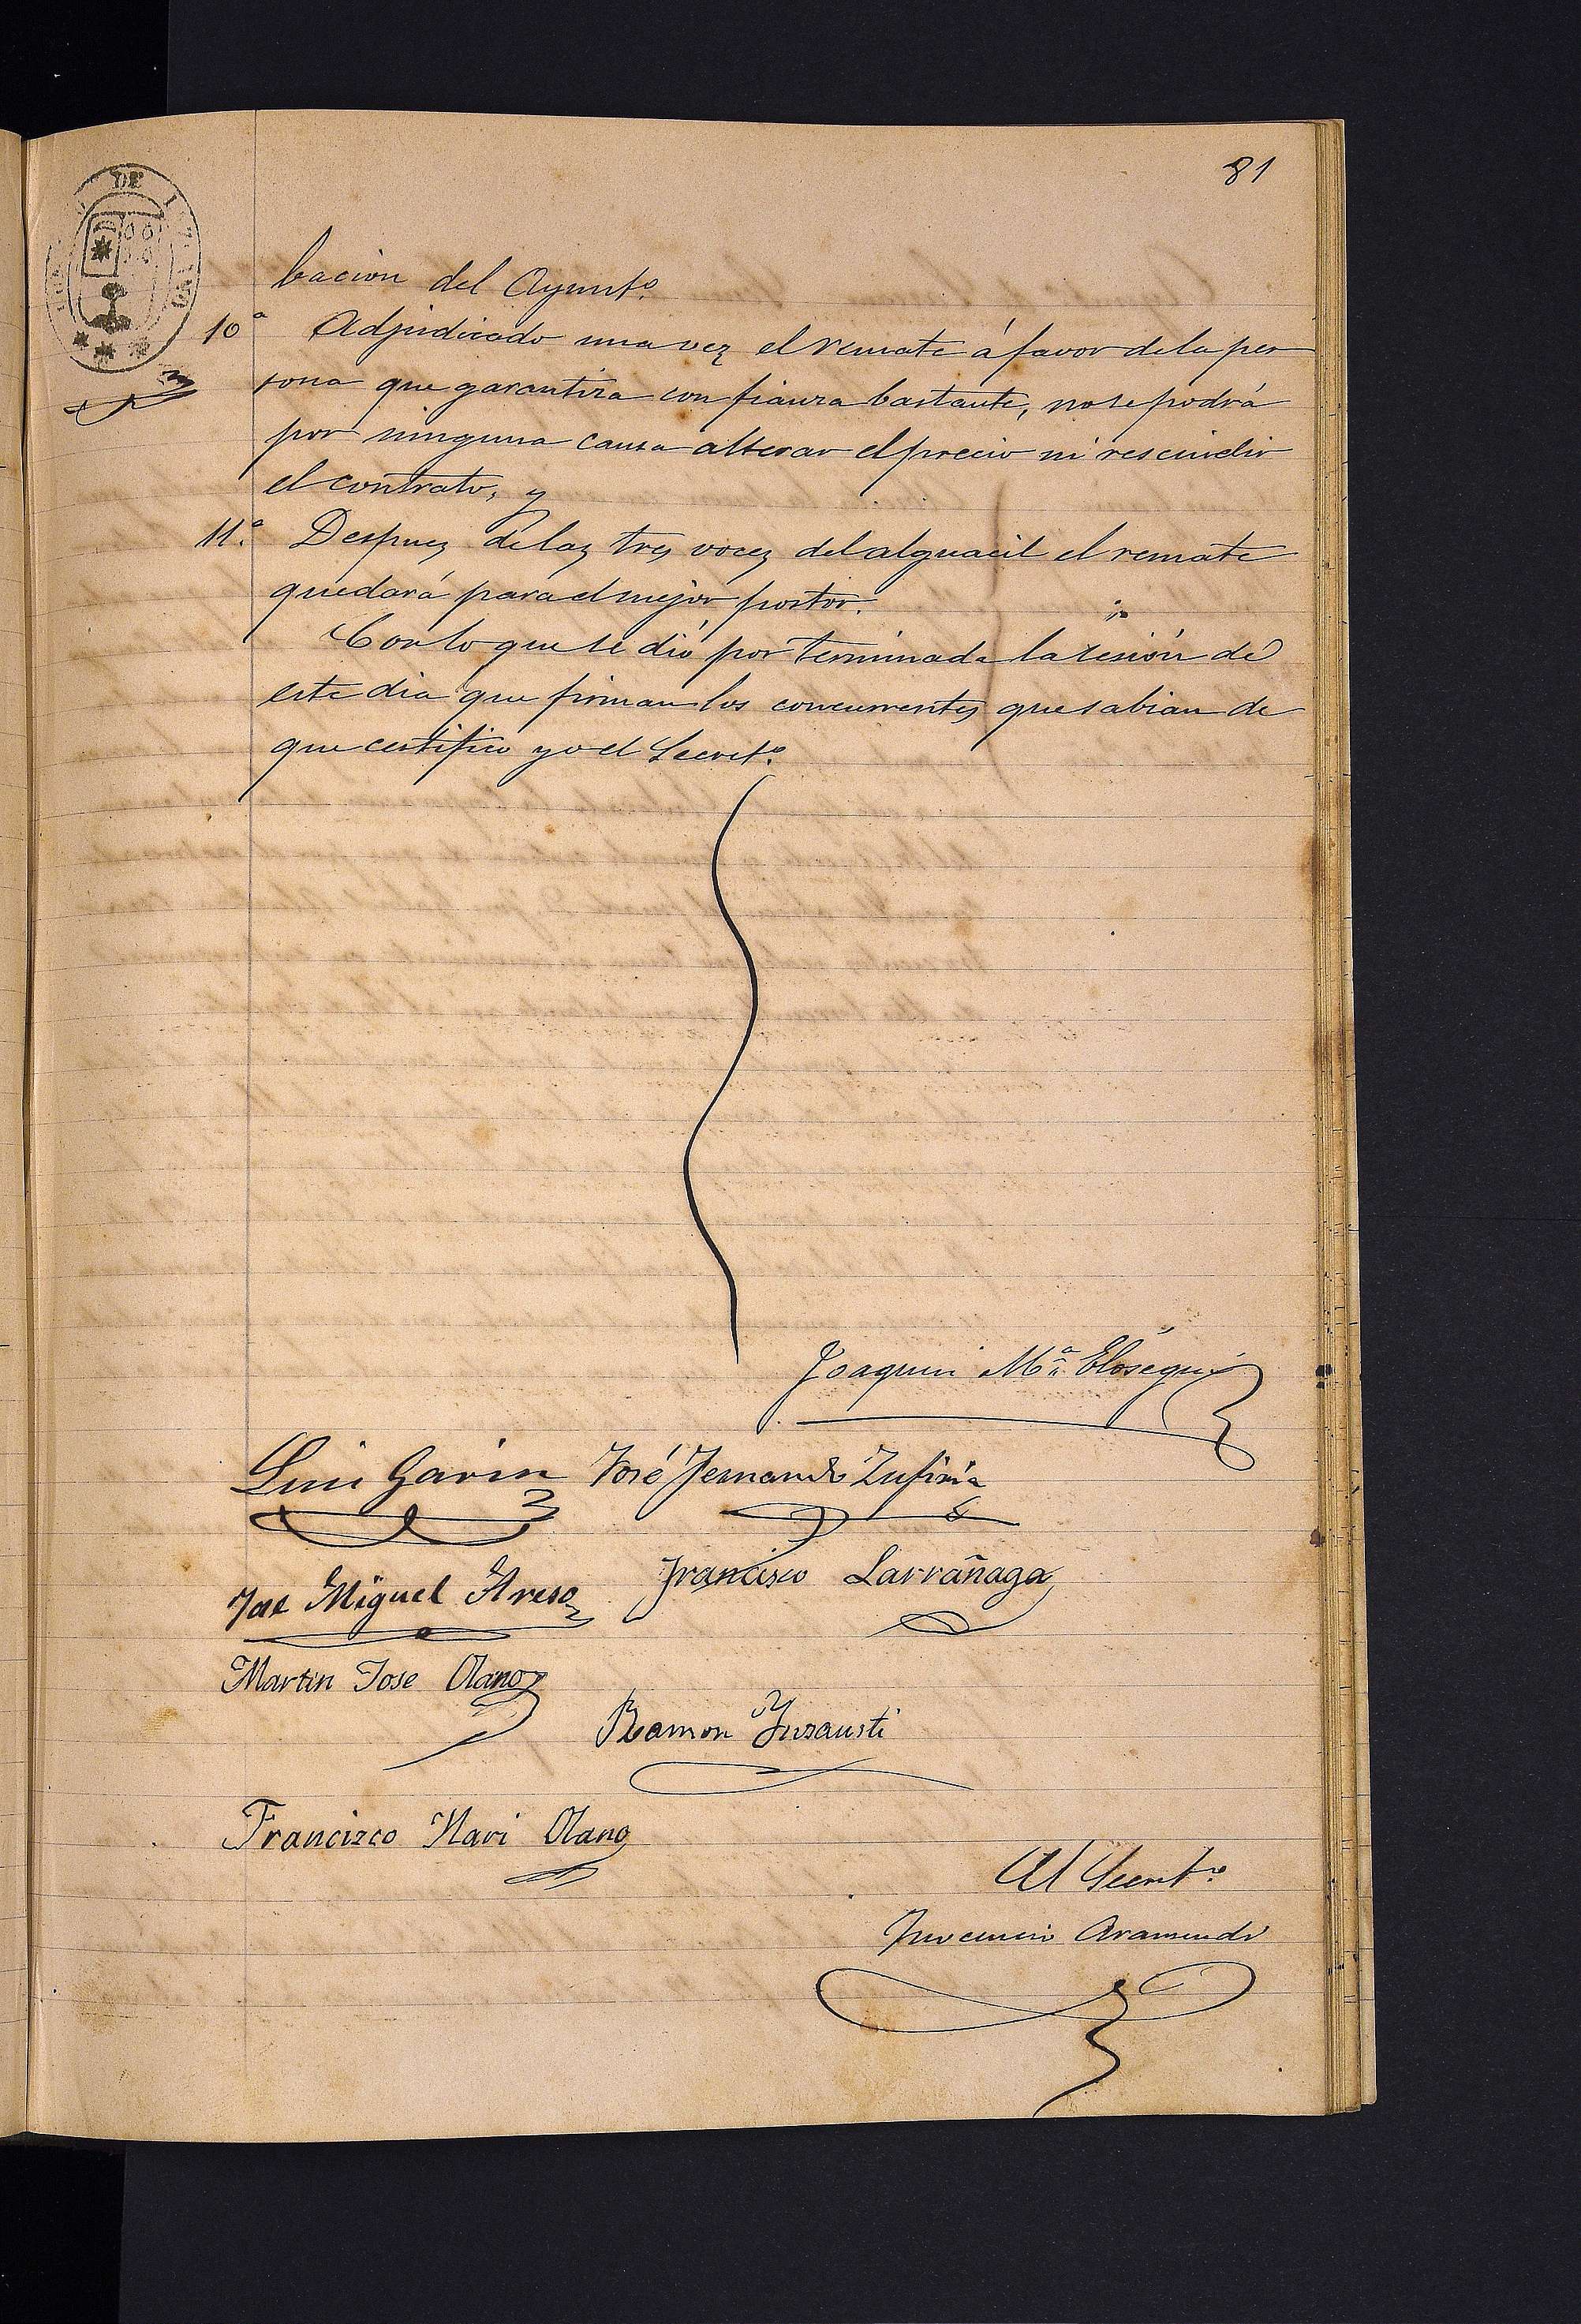 81
DE
bacion del Ayunt.º
10ª Adjudicado una vez el remate á favor de la per
sona que garantiza con fianza bastante, no se podrá
por ninguna causa alterar el precio ni rescindir
el contrato, y
11.ª Despues de las tres voces del alguacil el remate
quedará para el mejor postor.
Con lo que se dió por terminada la sesión de
este dia que firman los concurrentes que sabian de
que certifico yo el Secret.º
Joaquin M.ª Elosegui
Luis Garin José Fernando Zufiria
José Miguel Areso Francisco Larrañaga
Martin Jose Olano
Ramon Insausti
Francisco Olano
El Secret.º
Inocencio Aramendi